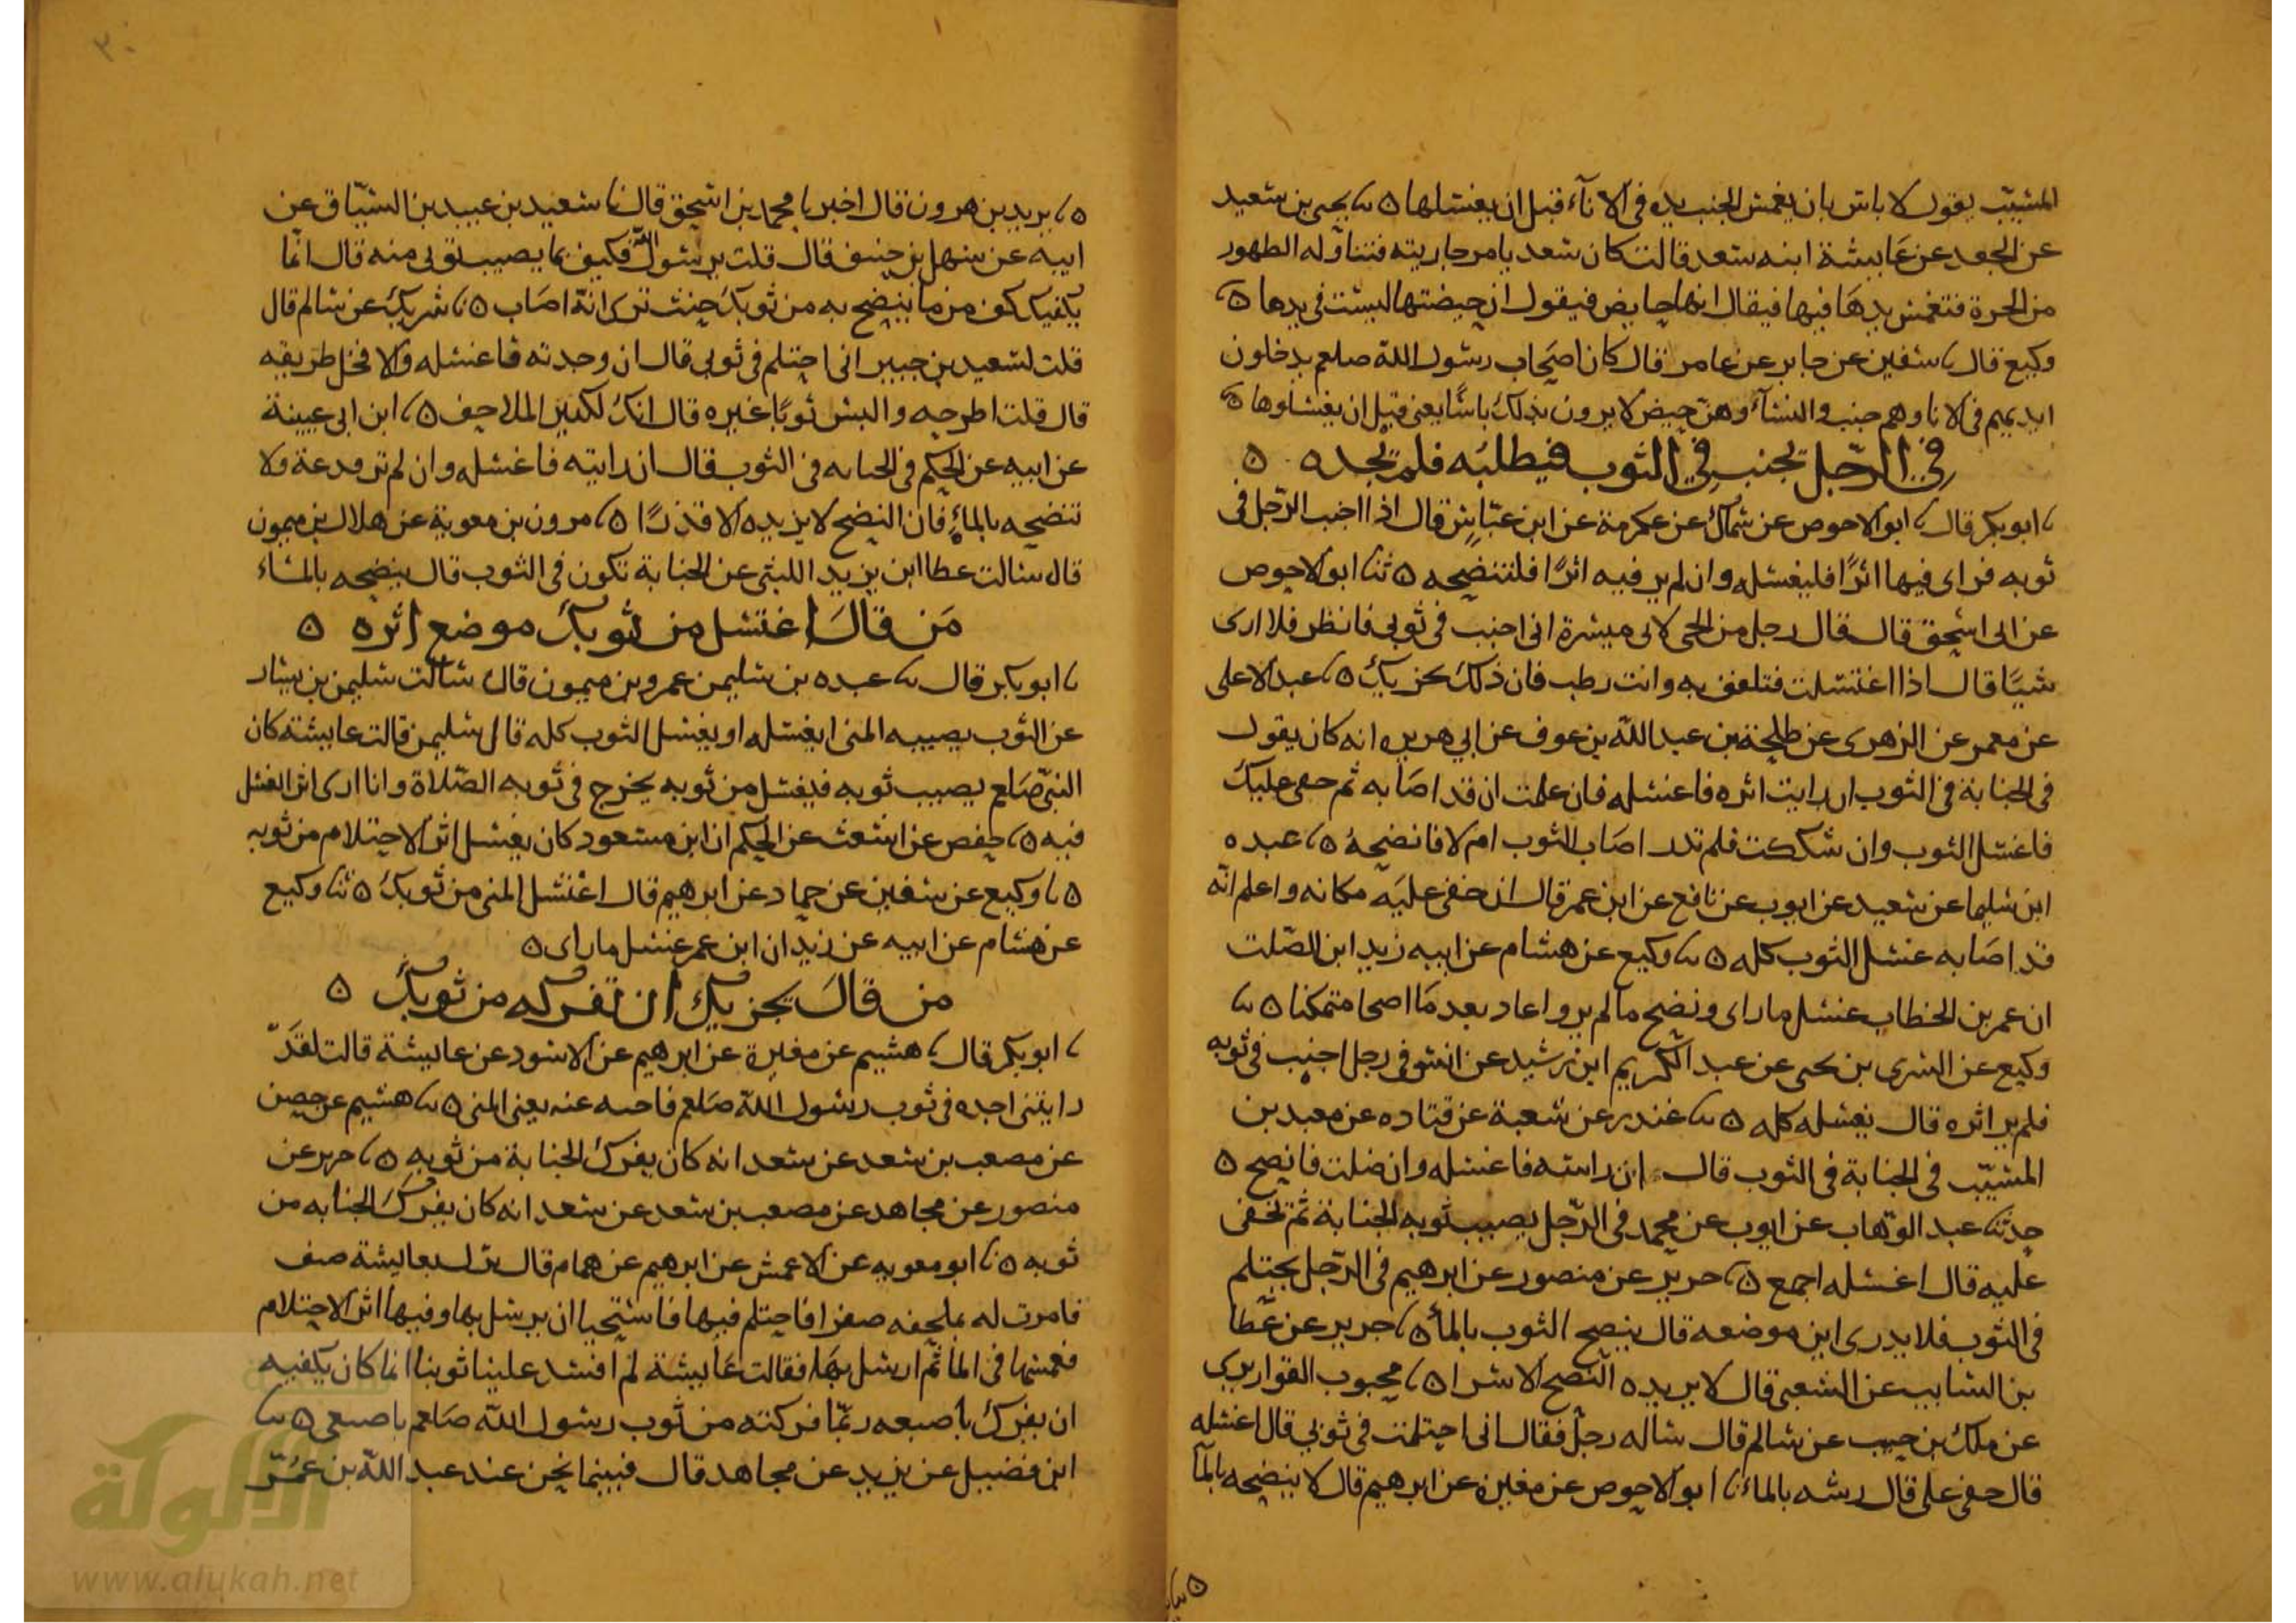 المسيب يقول لا باس بان يغمس الجنب يده في الاناء قبل ان يغسلها ٥ نا يحيى بن سعيد
عن الجعد عن عايشة ابنه سعد قالت كان سعد يامر جاريته فتناوله الطهور
من الجرة فتغمس يدها فيها فيقال انها حايض فيقول ان حيضتها ليست في يدها ٥
وكيع قال نا سفين عن جابر عن عامر قال كان اصحاب رسول الله صلعم يدخلون
ايديهم في الانا وهم جنب والنساء وهن حيض لا يرون بذلك باسا يعني قبل ان يغسلوها ٥
في الرجل يجنب في الثوب فيطلبه فلم يجده ٥
نا ابو بكر قال نا ابو الاحوص عن سماك عن عكرمة عن ابن عباس قال اذا اجنب الرجل في
ثوبه فراى فيها اثرا فليغسله وان لم ير فيه اثرا فلينضحه ٥ ثنا ابو الاحوص
عن ابي اسحق قال قال رجل من الحي لابي ميسرة اني اجنب في ثوبي فانظر فلا ارى
شيا قال اذا اغتسلت فتلفف به وانت رطب فان ذلك يجزيك ٥ نا عبد الاعلى
عن معمر عن الزهرى عن طلحة بن عبد الله بن عوف عن ابي هريره انه كان يقول
في الجنابة في الثوب ان رايت اثره فاغسله فان علمت ان قد اصابه ثم خفى عليك
فاغسل الثوب وان شككت فلم تدر اصاب الثوب ام لا فانضحه ٥ نا عبده
ابن سليما عن سعيد عن ايوب عن نافع عن ابن عمر قال ان خفى عليه مكانه واعلم انه
قد اصابه غسل الثوب كله ٥ نا وكيع عن هشام عن ابيه زيد ابن الصلت
ان عمر بن الخطاب غسل ما راى ونضح ما لم ير واعاد بعد ما اضحا متمكنا ٥ نا
وكيع عن السرى بن يحيى عن عبد الكريم ابن رشيد عن انس في رجل اجنب في ثوبه
فلم ير اثره قال يغسله كله ٥ نا غندر عن شعبة عن قتاده عن معبد بن
المسيب في الجنابة في الثوب قال ان رايته فاغسله وان ضللت فانضح ٥
حدثنا عبد الوهاب عن ايوب عن محمد في الرجل يصيب ثوبه الجنابة ثم تخفى
عليه قال اغسله اجمع ٥ نا جرير عن منصور عن ابرهيم في الرجل يحتلم
في الثوب فلا يدرى اين موضعه قال ينضح الثوب بالماء ٥ نا جرير عن عطا
بن السايب عن الشعبي قال لا يريده النضح الا شرا ٥ نا محبوب القواريرى
عن ملك بن حبيب عن سالم قال ساله رجل فقال اني احتلمت في ثوبي قال اغسله
قال خفى على قال رشه بالماء نا ابو الاحوص عن مغيره عن ابرهيم قال لا ينضحه بالماء
٣٠
٥ نا يزيد بن هرون قال اخبرنا محمد بن اسحق قال نا سعيد بن عبيد بن السباق عن
ابيه عن سهل بن حنيف قال قلت يرسول الله فكيف بما يصيب ثوبي منه قال انما
يكفيك كف من ما ينضح به من ثوبك حيث ترى انه اصاب ٥ نا شريك عن سالم قال
قلت لسعيد بن جبير اني احتلم في ثوبي قال ان وجدته فاغسله والا فخل طريقه
قال قلت اطرحه والبس ثوبا غيره قال انك لكثير الملاحف ٥ نا ابن ابي عيينة
عن ابيه عن الحكم في الجنابه في الثوب قال ان رايته فاغسله وان لم تر فدعة ولا
تنضحه بالماء فان النضح لا يزيده الا قذرا ٥ نا مرون بن معوية عن هلال بن ميمون
قال سالت عطا ابن يزيد الليثى عن الجنابة تكون في الثوب قال ينضحه بالماء
من قال اغتسل من ثوبك موضع اثره ٥
نا ابو بكر قال نا عبده بن سليمن عمرو بن ميمون قال سالت سليمن بن يسار
عن الثوب يصيبه المني ايغسله او يغسل الثوب كله قال سليمن قالت عايشة كان
النبي صلعم يصيب ثوبه فيغسل من ثوبه يخرج في ثوبه الصلاة وانا ارى اثر الغسل
فيه ٥ نا حفص عن اشعث عن الحكم ان ابن مسعود كان يغسل اثر الاحتلام من ثوبه
٥ نا وكيع عن سفين عن حماد عن ابرهيم قال اغسل المني من ثوبك ٥ ثنا وكيع
عن هشام عن ابيه عن زيد ان ابن عمر غسل ما راى ٥
من قال يجزيك ان تفركه من ثوبك ٥
نا ابو بكر قال نا هشيم عن مغيرة عن ابرهيم عن الاسود عن عايشة قالت لقد
رايتني اجده في ثوب رسول الله صلعم فاحته عنه يعني المني ٥ نا هشيم عن حصين
عن مصعب بن سعد عن سعد انه كان يفرك الجنابة من ثوبه ٥ نا جرير عن
منصور عن مجاهد عن مصعب بن سعد عن سعد انه كان يفرك الجنابه من
ثوبه ٥ نا ابو معويه عن الاعمش عن ابرهيم عن همام قال نزل بعايشة ضيف
فامرت له بملحفه صفرا فاحتلم فيها فاستحيا ان يرسل بها وفيها اثر الاحتلام
فغمسها في الما ثم ارسل بها فقالت عايشة لم افسد علينا ثوبنا انما كان يكفيه
ان يفرك باصبعه ربما فركته من ثوب رسول الله صلعم باصبعى ٥ نا
ابن فضيل عن يزيد عن مجاهد قال فبينما نحن عند عبد الله بن عمر
الألوكة
www.alukah.net